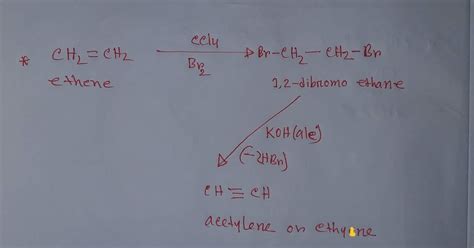 * CH₂=CH₂ —CCl₄ / Br₂→ Br-CH₂-CH₂-Br
ethene 1,2-dibromo ethane
KOH(alc)
(-2HBr)
CH≡CH
acetylene or ethyne